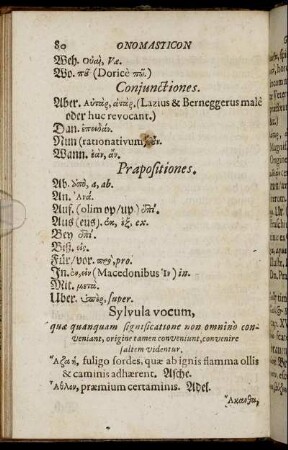 80 ONOMASTICON
Weh. Οὐαὶ, Væ.
Wo. πᾶ (Doricè πῶ.)
Conjunctiones.
Aber. Αὐτὰρ, ἀτὰρ. (Lazius & Berneggerus malè
oder huc revocant.)
Dan.
Nun (rationativum) οὖν.
Wann. ἐὰν, ἂν.
Præpositiones.
Ab. ἀπὸ, a, ab.
An. Ἀνά.
Auf. (olim op/up) ἐπί.
Aus (eus). ἐκ, ἐξ, ex.
Bey ἐπί.
Biß. εἰς.
Für/vor. πρὸ, pro.
In. ἐν, εἰν (Macedonibus ἰν) in.
Mit. μετά.
Uber. ὑπὲρ, super.
Sylvula vocum,
quæ quanquam significatione non omninò con-
veniant, origine tamen conveniunt, convenire
saltem videntur.
Ἄζα ἡ, fuligo sordes, quæ ab ignis flamma ollis
& caminis adhærent. Asche.
Ἆθλον, præmium certaminis. Adel.